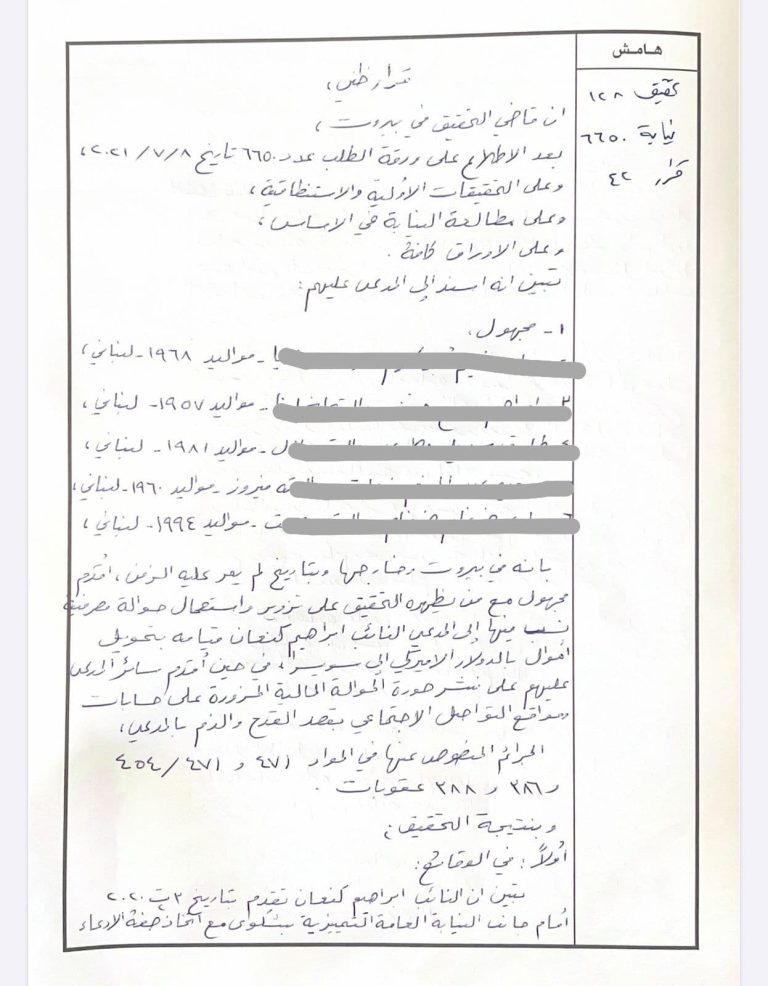 هامش
تحقيق ١٢٨
نيابة ٦٦٥٠
قرار ٤٢
قرار ظني،
ان قاضي التحقيق في بيروت،
بعد الاطلاع على ورقة الطلب عدد ٦٦٥٠ تاريخ ٢٠٢١/٧/٨،
وعلى التحقيقات الأولية والاستنطاقية،
وعلى مطالعة النيابة في الاساس،
وعلى الاوراق كافة.
تبين انه اسند إلى المدعى عليهم:
١- مجهول.
- مواليد ١٩٦٨- لبناني،
- مواليد ١٩٥٧- لبناني،
- مواليد ١٩٨١- لبناني،
فيروز - مواليد ١٩٦٠- لبناني،
- مواليد ١٩٩٤- لبناني،
بانه في بيروت وخارجها وبتاريخ لم يمر عليه الزمن، أقدم
مجهول مع من يظهره التحقيق على تزوير واستعمال حوالة مصرفية
نسب منها إلى المدعي النائب ابراهيم كنعان قيامه بتحويل
أموال بالدولار الاميركي إلى سويسرا، في حين أقدم سائر المدعى
عليهم على نشر صورة الحوالة المالية المزورة على حسابات
ومواقع التواصل الاجتماعي بقصد القدح والذم بالمدعي،
الجرائم المنصوص عنها في المواد ٤٧١ و ٤٧١/٤٥٤
و٣٨٦ و ٣٨٨ عقوبات.
وبنتيجة التحقيق:
أولاً: في الوقائع:
تبين ان النائب ابراهيم كنعان تقدم بتاريخ ٣ ت٢ ٢٠٢٠
أمام جانب النيابة العامة التمييزية بشكوى مع اتخاذ صفة الادعاء